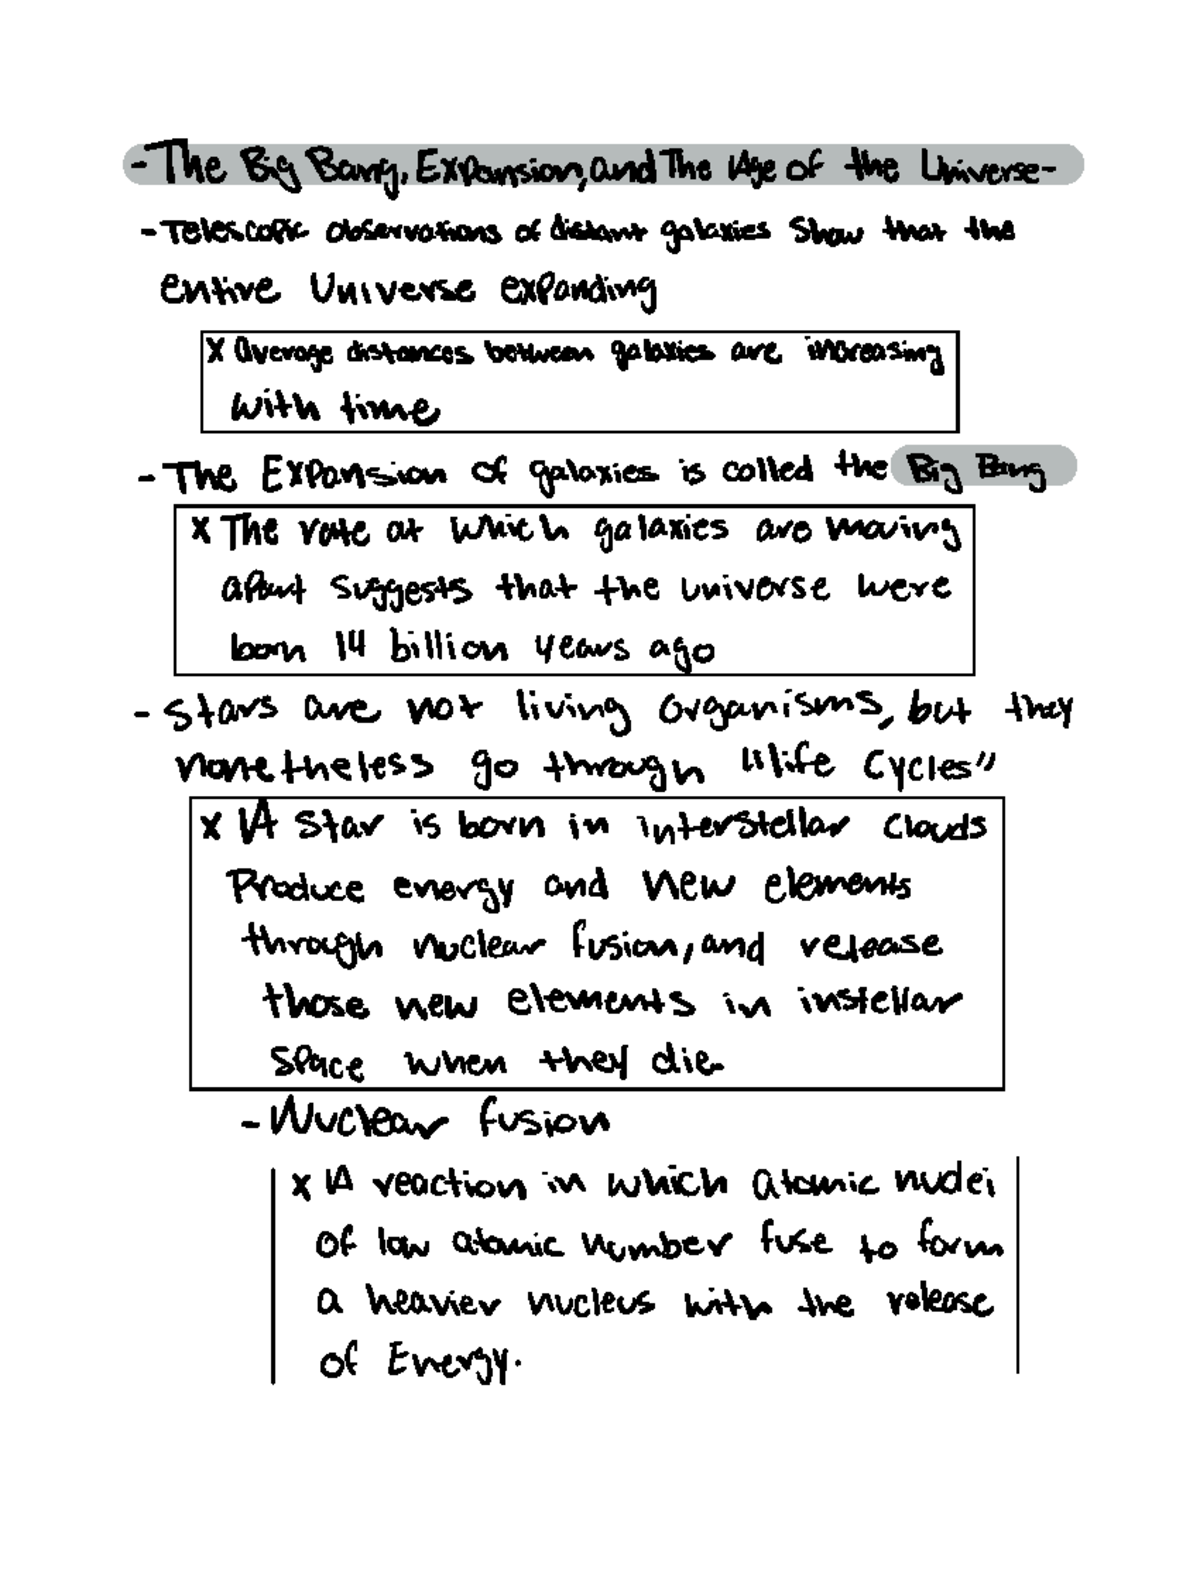 -The Big Bang, Expansion, and The Age of the Universe-
- Telescopic observations of distant galaxies show that the
entire Universe expanding
x average distances between galaxies are increasing
with time
- The Expansion of galaxies is called the Big Bang
x The rate at which galaxies are moving
apart suggests that the universe were
born 14 billion years ago
- Stars are not living organisms, but they
nonetheless go through "life cycles"
x A star is born in interstellar clouds
Produce energy and new elements
through nuclear fusion, and release
those new elements in instellar
space when they die.
- Nuclear fusion
x A reaction in which atomic nuclei
of low atomic number fuse to form
a heavier nucleus with the release
of Energy.